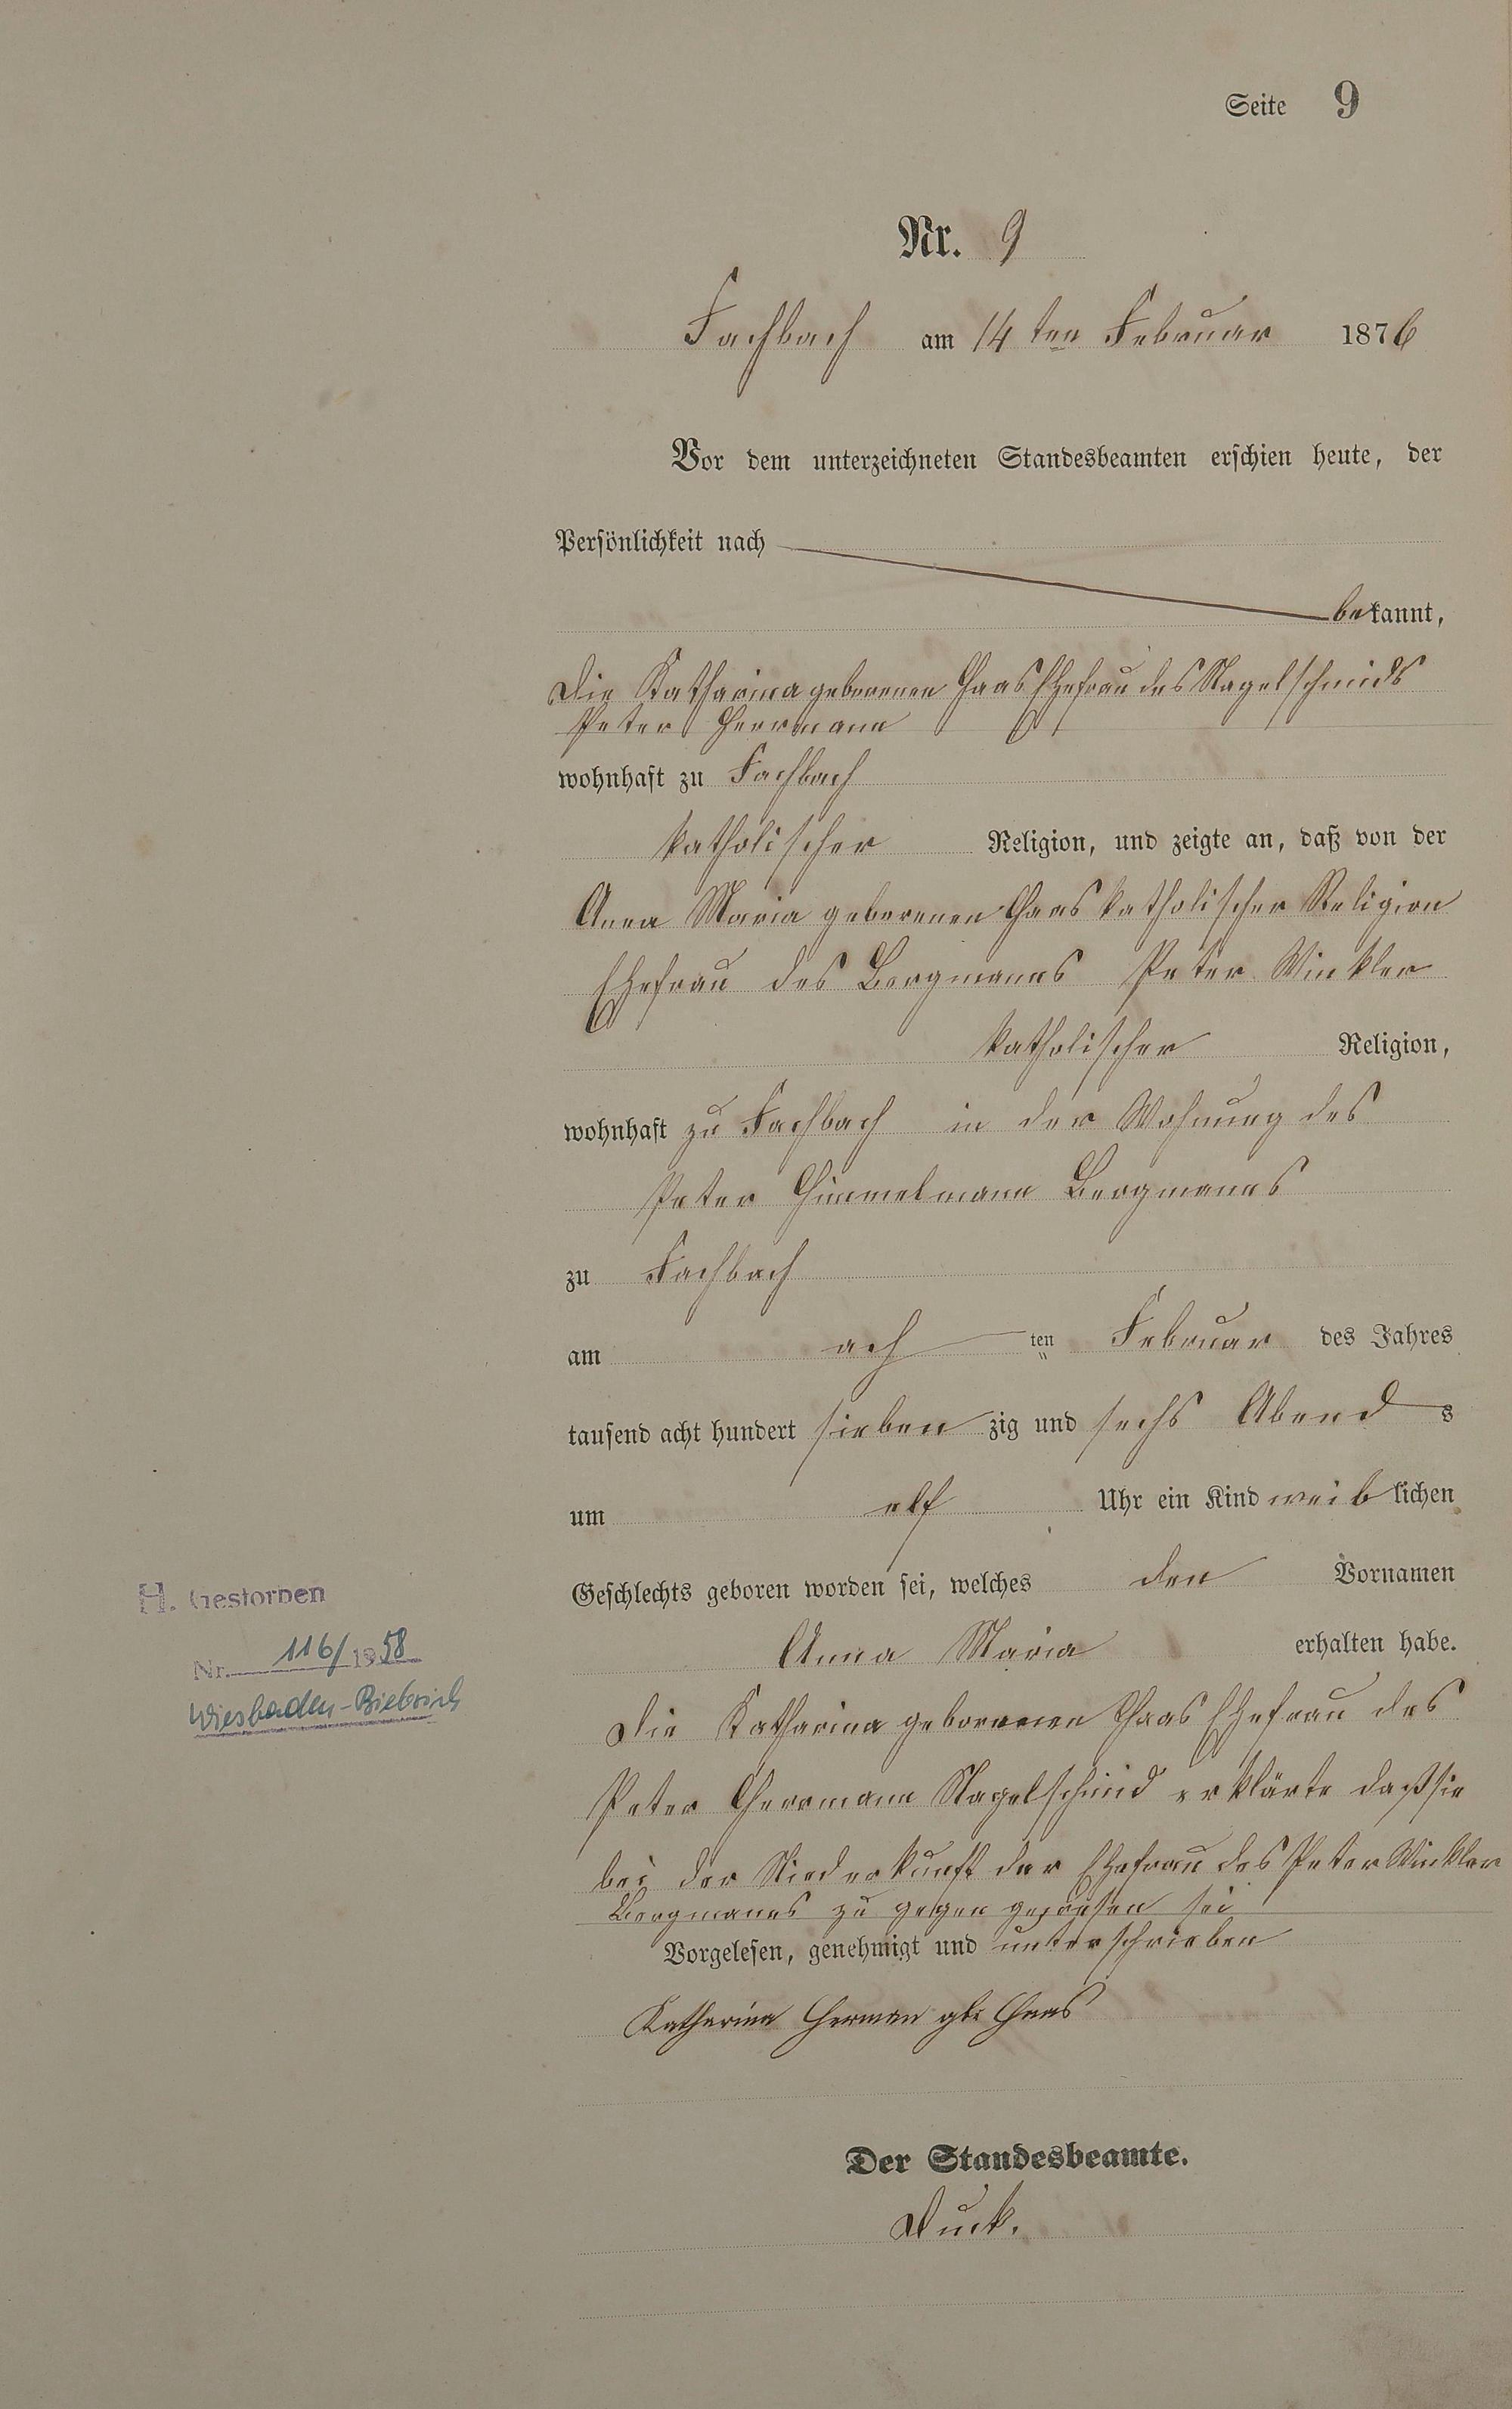 Seite 9
Nr. 9
Fachbach am 14ten Februar 1876
Vor dem unterzeichneten Standesbeamten erschien heute, der
Persönlichkeit nach
bekannt,
die Katharina geborenen Haas Ehefrau des Nagelschmids
Peter Herrmann
wohnhaft zu Fachbach
katholischer Religion, und zeigte an, daß von der
Anna Maria geborenen Haas katholischer Religion
Ehefrau des Bergmanns Peter Winkler
katholischer Religion,
wohnhaft zu Fachbach in der Wohnung des
Peter Himmelmann Bergmanns
zu Fachbach
am ach ten Februar des Jahres
tausend acht hundert sieben zig und sechs Abend s
um elf Uhr ein Kind weib lichen
Geschlechts geboren worden sei, welches den Vornamen
Anna Maria erhalten habe.
Die Katharina geborenen Haas Ehefrau des
Peter Herrmann Nagelschmid erklärte daß sie
bei der Niederkunft der Ehefrau des Peter Winkler
Bergmanns zu gegen gewesen sei
Vorgelesen, genehmigt und unterschrieben
Katharina Herman gb: Haas
Der Standesbeamte.
Duck.
H. Gestorben
Nr. 116/1958
Wiesbaden-Biebrich